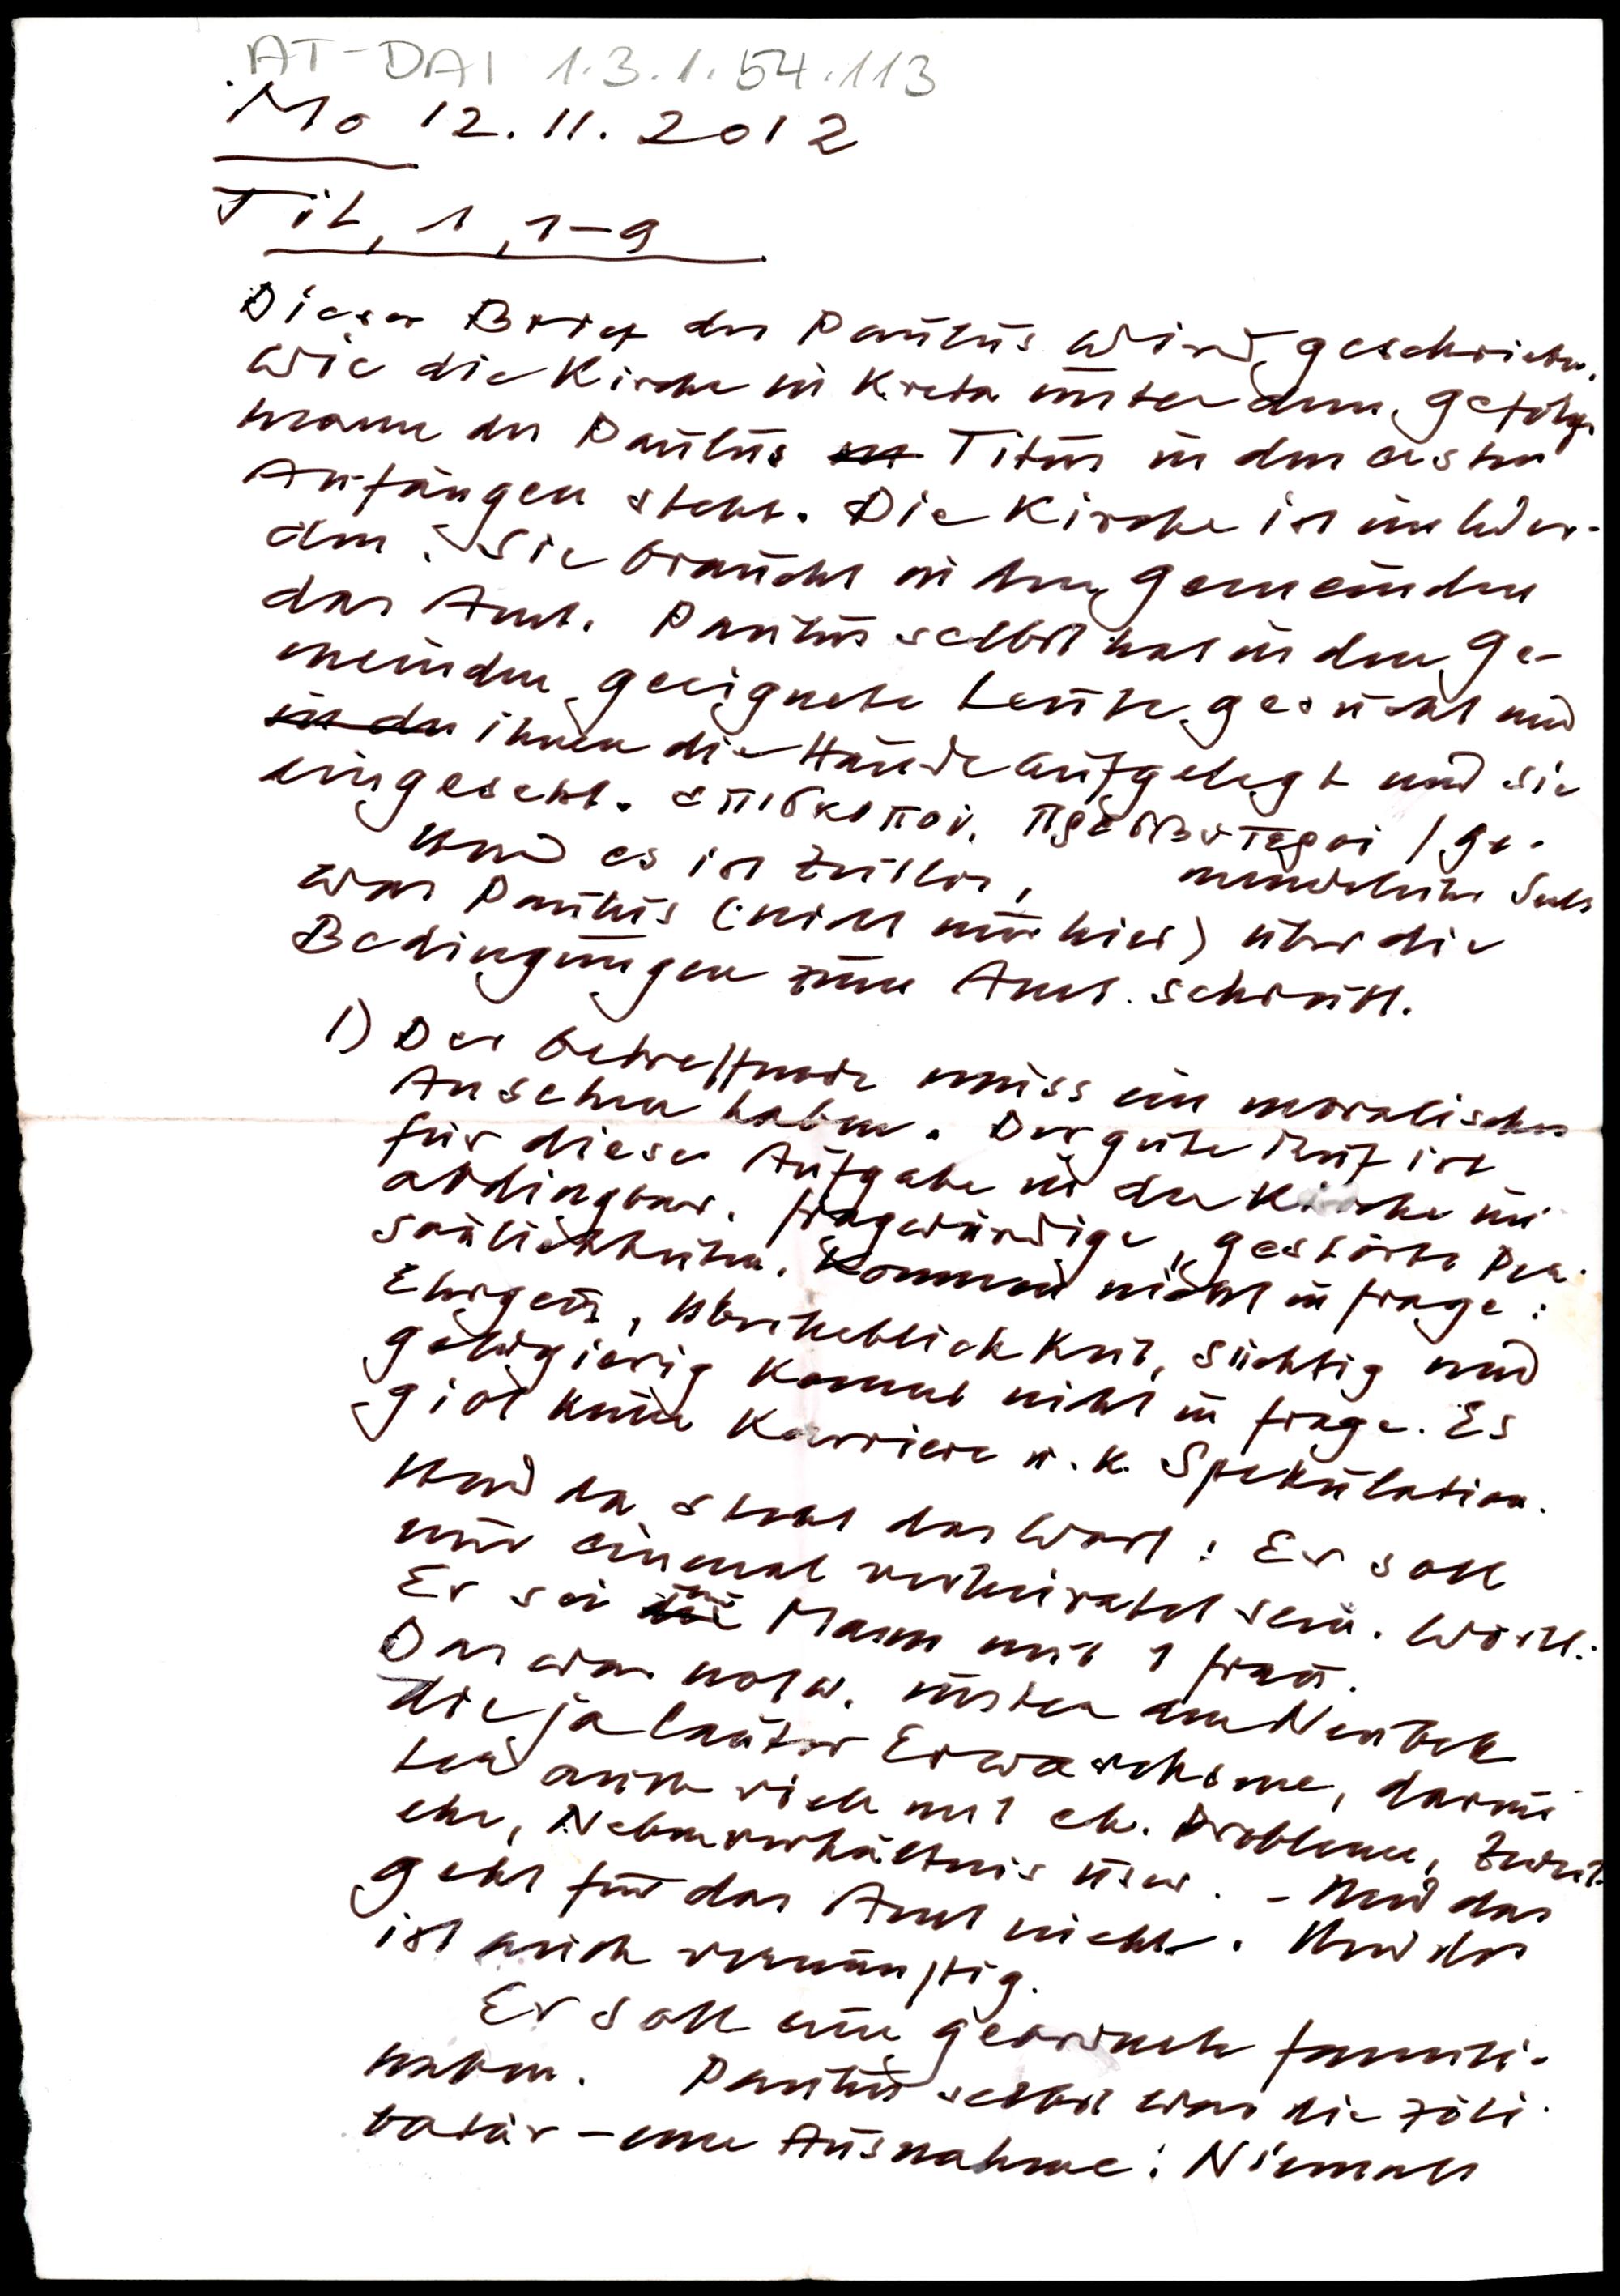 AT-DAI 1.3.1.54.113
Mo 12.11.2012
Tit, 1, 1-9
Dieser Brief des Paulus wird geschrieben,
wie die Kirche in Kreta unter dem Gefolgs
mann des Paulus Titus in den ersten
Anfängen steht. Die Kirche ist im Wer-
den. Sie braucht in den Gemeinden
das Amt. Paulus selbst hat in den Ge-
meinden geeignete Leute gesucht und
in der ihnen die Hände aufgelegt und sie
eingesetzt. επισκοποι, πρεσβυτεροι / Ge-
meindeleiter
Und es ist zeitlos,
was Paulus (nicht nur hier) über die
Bedingungen zum Amt schreibt.
1) Der Betreffende muss ein moralisches
Ansehen haben. Der gute Ruf ist
für diese Aufgabe in der Kirche un
abdingbar. Fragwürdige, gestörte Per-
sönlichkeiten. Kommen nicht in Frage:
Ehrgeiz, Überheblichkeit, süchtig und
geldgierig kommt nicht in Frage. Es
gibt keine Karriere u. k. Spekulation.
Und da steht das Wort: Er soll
nur einmal verheiratet sein. Wörtl.:
Er sei Mann mit 1 Frau.
Das war notw. unter den Neubek
die ja lauter Erwachsene, darun
ter auch viele mit eh. Probleme, Zweit-
ehe, Nebenverhältnis usw. - Und das
geht für das Amt nicht. Und das
ist auch vernünftig.
Er soll eine geordnete Famili-
haben. Paulus selbst war die zöli
batär - eine Ausnahme: Niemals